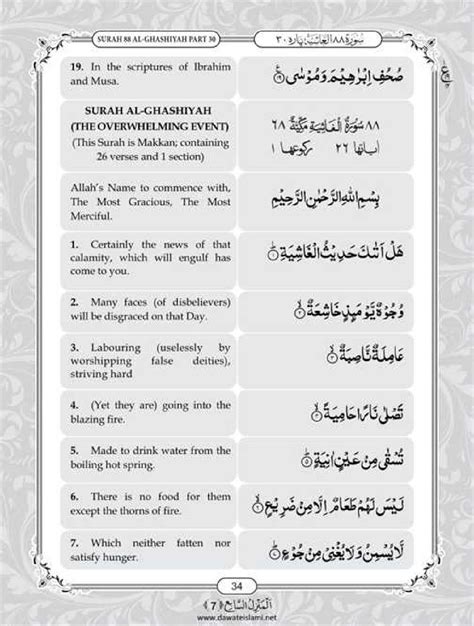 SURAH 88 AL-GHASHIYAH PART 30
سُوْرَةُ ٨٨ الْغَاشِيَة پاره ٣٠
19. In the scriptures of Ibrahim
and Musa.
صُحُفِ اِبْرٰهِيْمَ وَمُوْسٰى ۟
SURAH AL-GHASHIYAH
(THE OVERWHELMING EVENT)
(This Surah is Makkan; containing
26 verses and 1 section)
٨٨ سُوْرَةُ الْغَاشِيَةِ مَكِّيَّةٌ ٦٨
اٰياتها ٢٦ ركوعها ١
Allah's Name to commence with,
The Most Gracious, The Most
Merciful.
بِسْمِ اللّٰهِ الرَّحْمٰنِ الرَّحِيْمِ
1. Certainly the news of that
calamity, which will engulf has
come to you.
هَلْ اَتٰىكَ حَدِيْثُ الْغَاشِيَةِ ۟
2. Many faces (of disbelievers)
will be disgraced on that Day.
وُجُوْهٌ يَّوْمَىِٕذٍ خَاشِعَةٌ ۟
3. Labouring (uselessly by
worshipping false deities),
striving hard
عَامِلَةٌ نَّاصِبَةٌ ۟
4. (Yet they are) going into the
blazing fire.
تَصْلٰى نَارًا حَامِيَةً ۟
5. Made to drink water from the
boiling hot spring.
تُسْقٰى مِنْ عَيْنٍ اٰنِيَةٍ ۟
6. There is no food for them
except the thorns of fire.
لَيْسَ لَهُمْ طَعَامٌ اِلَّا مِنْ ضَرِيْعٍ ۟
7. Which neither fatten nor
satisfy hunger.
لَّا يُسْمِنُ وَلَا يُغْنِىْ مِنْ جُوْعٍ ۟
34
اَلْمَنْزِلُ السَّابِع ﴿7﴾
www.dawateislami.net